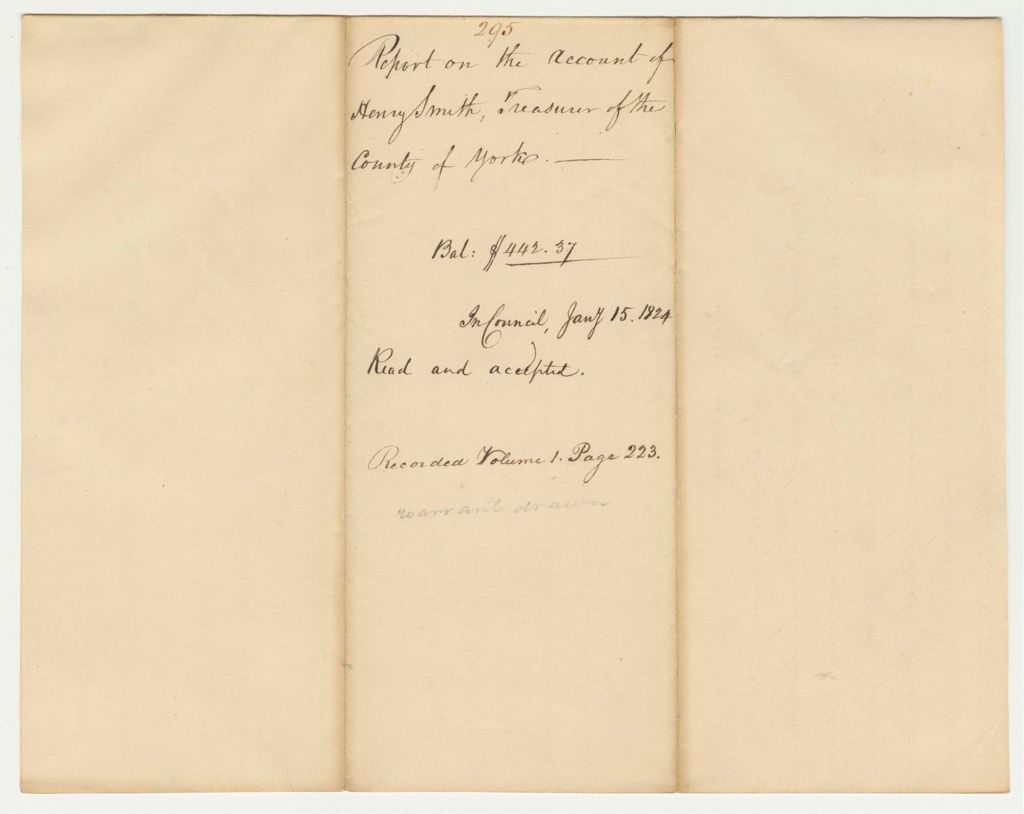 295
Report on the account of
Henry Smith, Treasurer of the
County of York. —
Bal: $442.37
In Council, Jany 15. 1824
Read and accepted.
Recorded Volume 1. Page 223.
warrant drawn